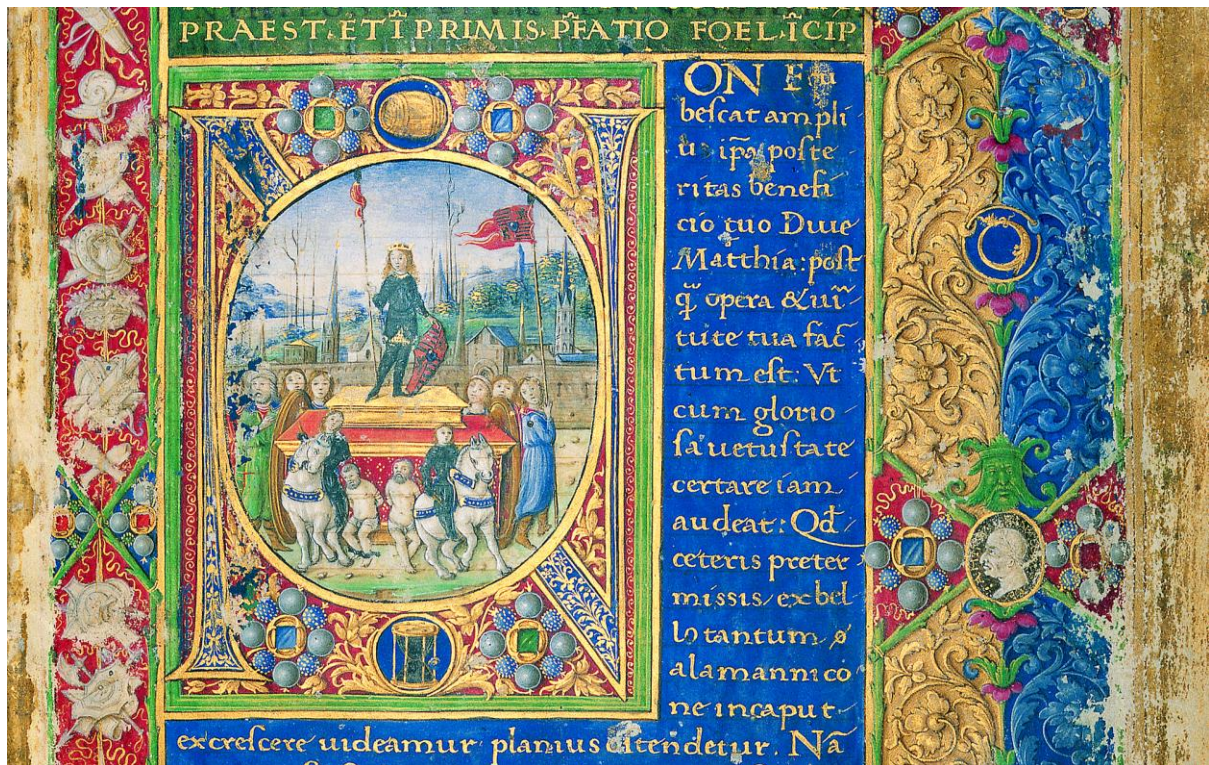 PRAEST. ETI᷈ PRIMIS. PF̃ATIO FOEL. ĨCIP
ON
beſcat ampli
ip̃a poſte
ritas benefi
cio tuo Diue
Matthia: poſt
q̃ opera & uir̃
tute tua fac̃
tum eſt: Vt
cum glorio
ſa uetuſtate
certare iam
audeat: Qd̃
ceteris preter
miſſis/ ex bel
lo tantum
alamannico
ne in caput
excreſcere uideamur planius oſtendetur. Nã